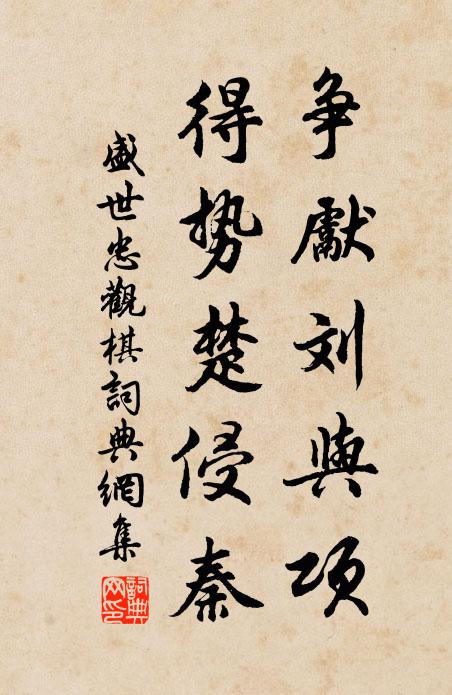 争獻刘與项
得势楚侵秦
盛世忠觀棋詞典網集
詞典